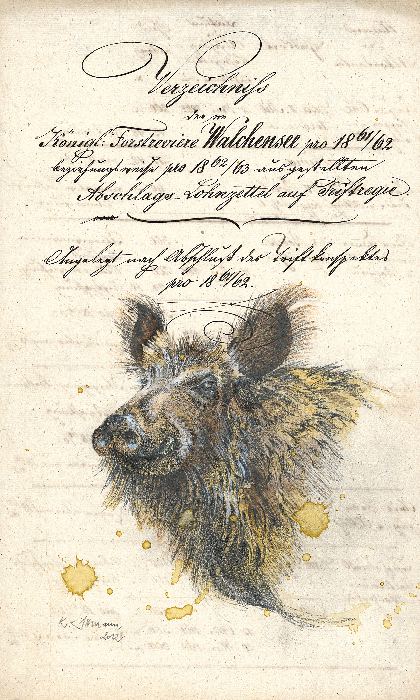 Verzeichniß
der im
Königl: Forstreviere Walchensee pro 1861/62
beziehungsweise pro 1862/63 ausgestellten
Abschlags-Lohnzettel auf Triftregie
Angelegt nach Abschluß des Triftkonspektes
pro 1861/62.